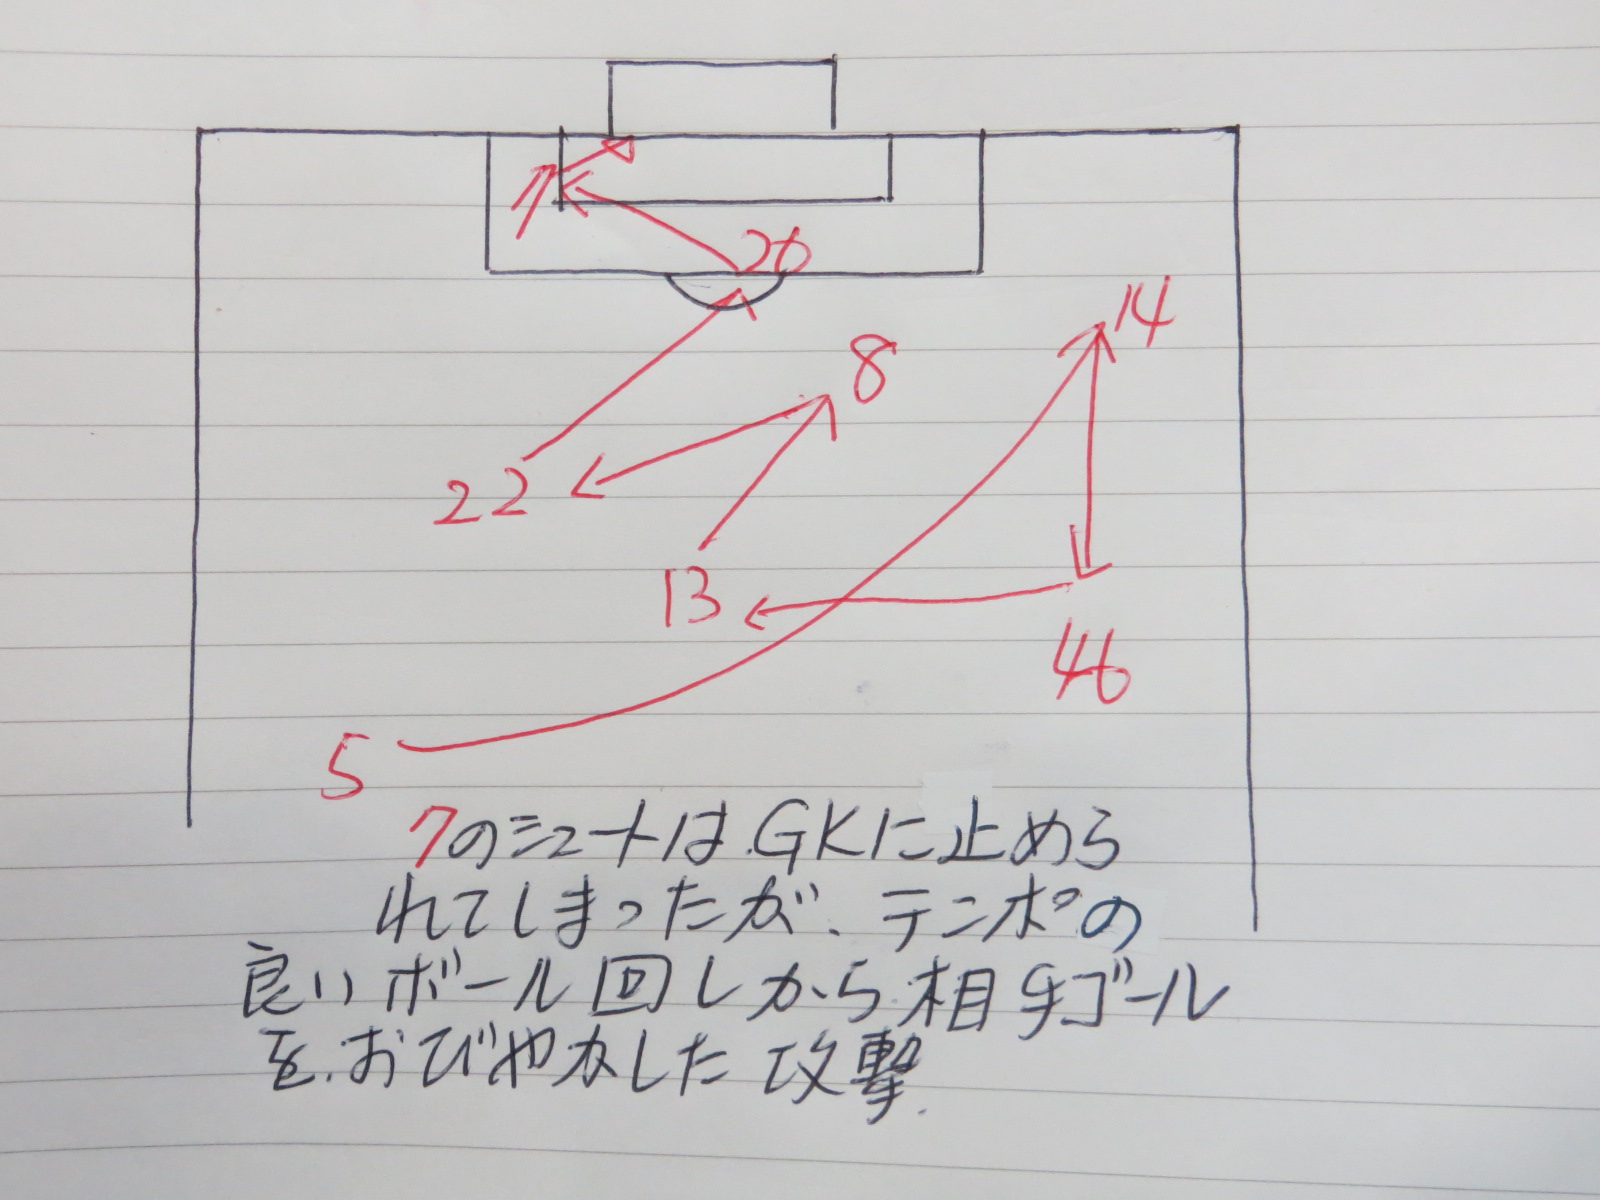 7
20
14
8
22
13
46
5
7のシュートはGKに止めら
れてしまったが、テンポの
良いボール回しから相手ゴール
を、おびやかした攻撃.